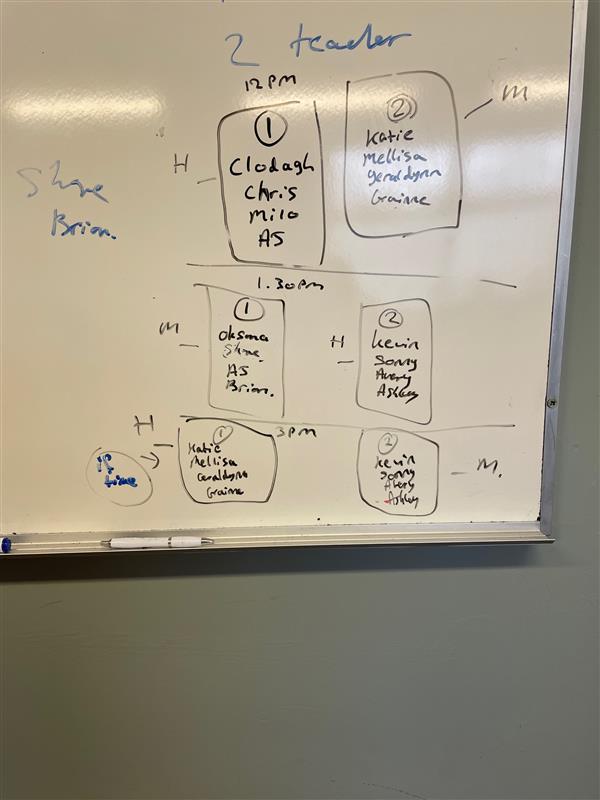 2 teacher
12PM
H
1
Clodagh
Chris
Milo
AS
2
Katie
Mellisa
Geraldynn
Grainne
M
Shane
Brian.
1.30PM
M
1
Oksana
Shane.
AS
Brian.
H
2
Kevin
Sonny
Avery
Ashley
3PM
H
1
Katie
Mellisa
Geraldynn
Grainne
time
2
Kevin
Sonny
Avery
Ashley
M.